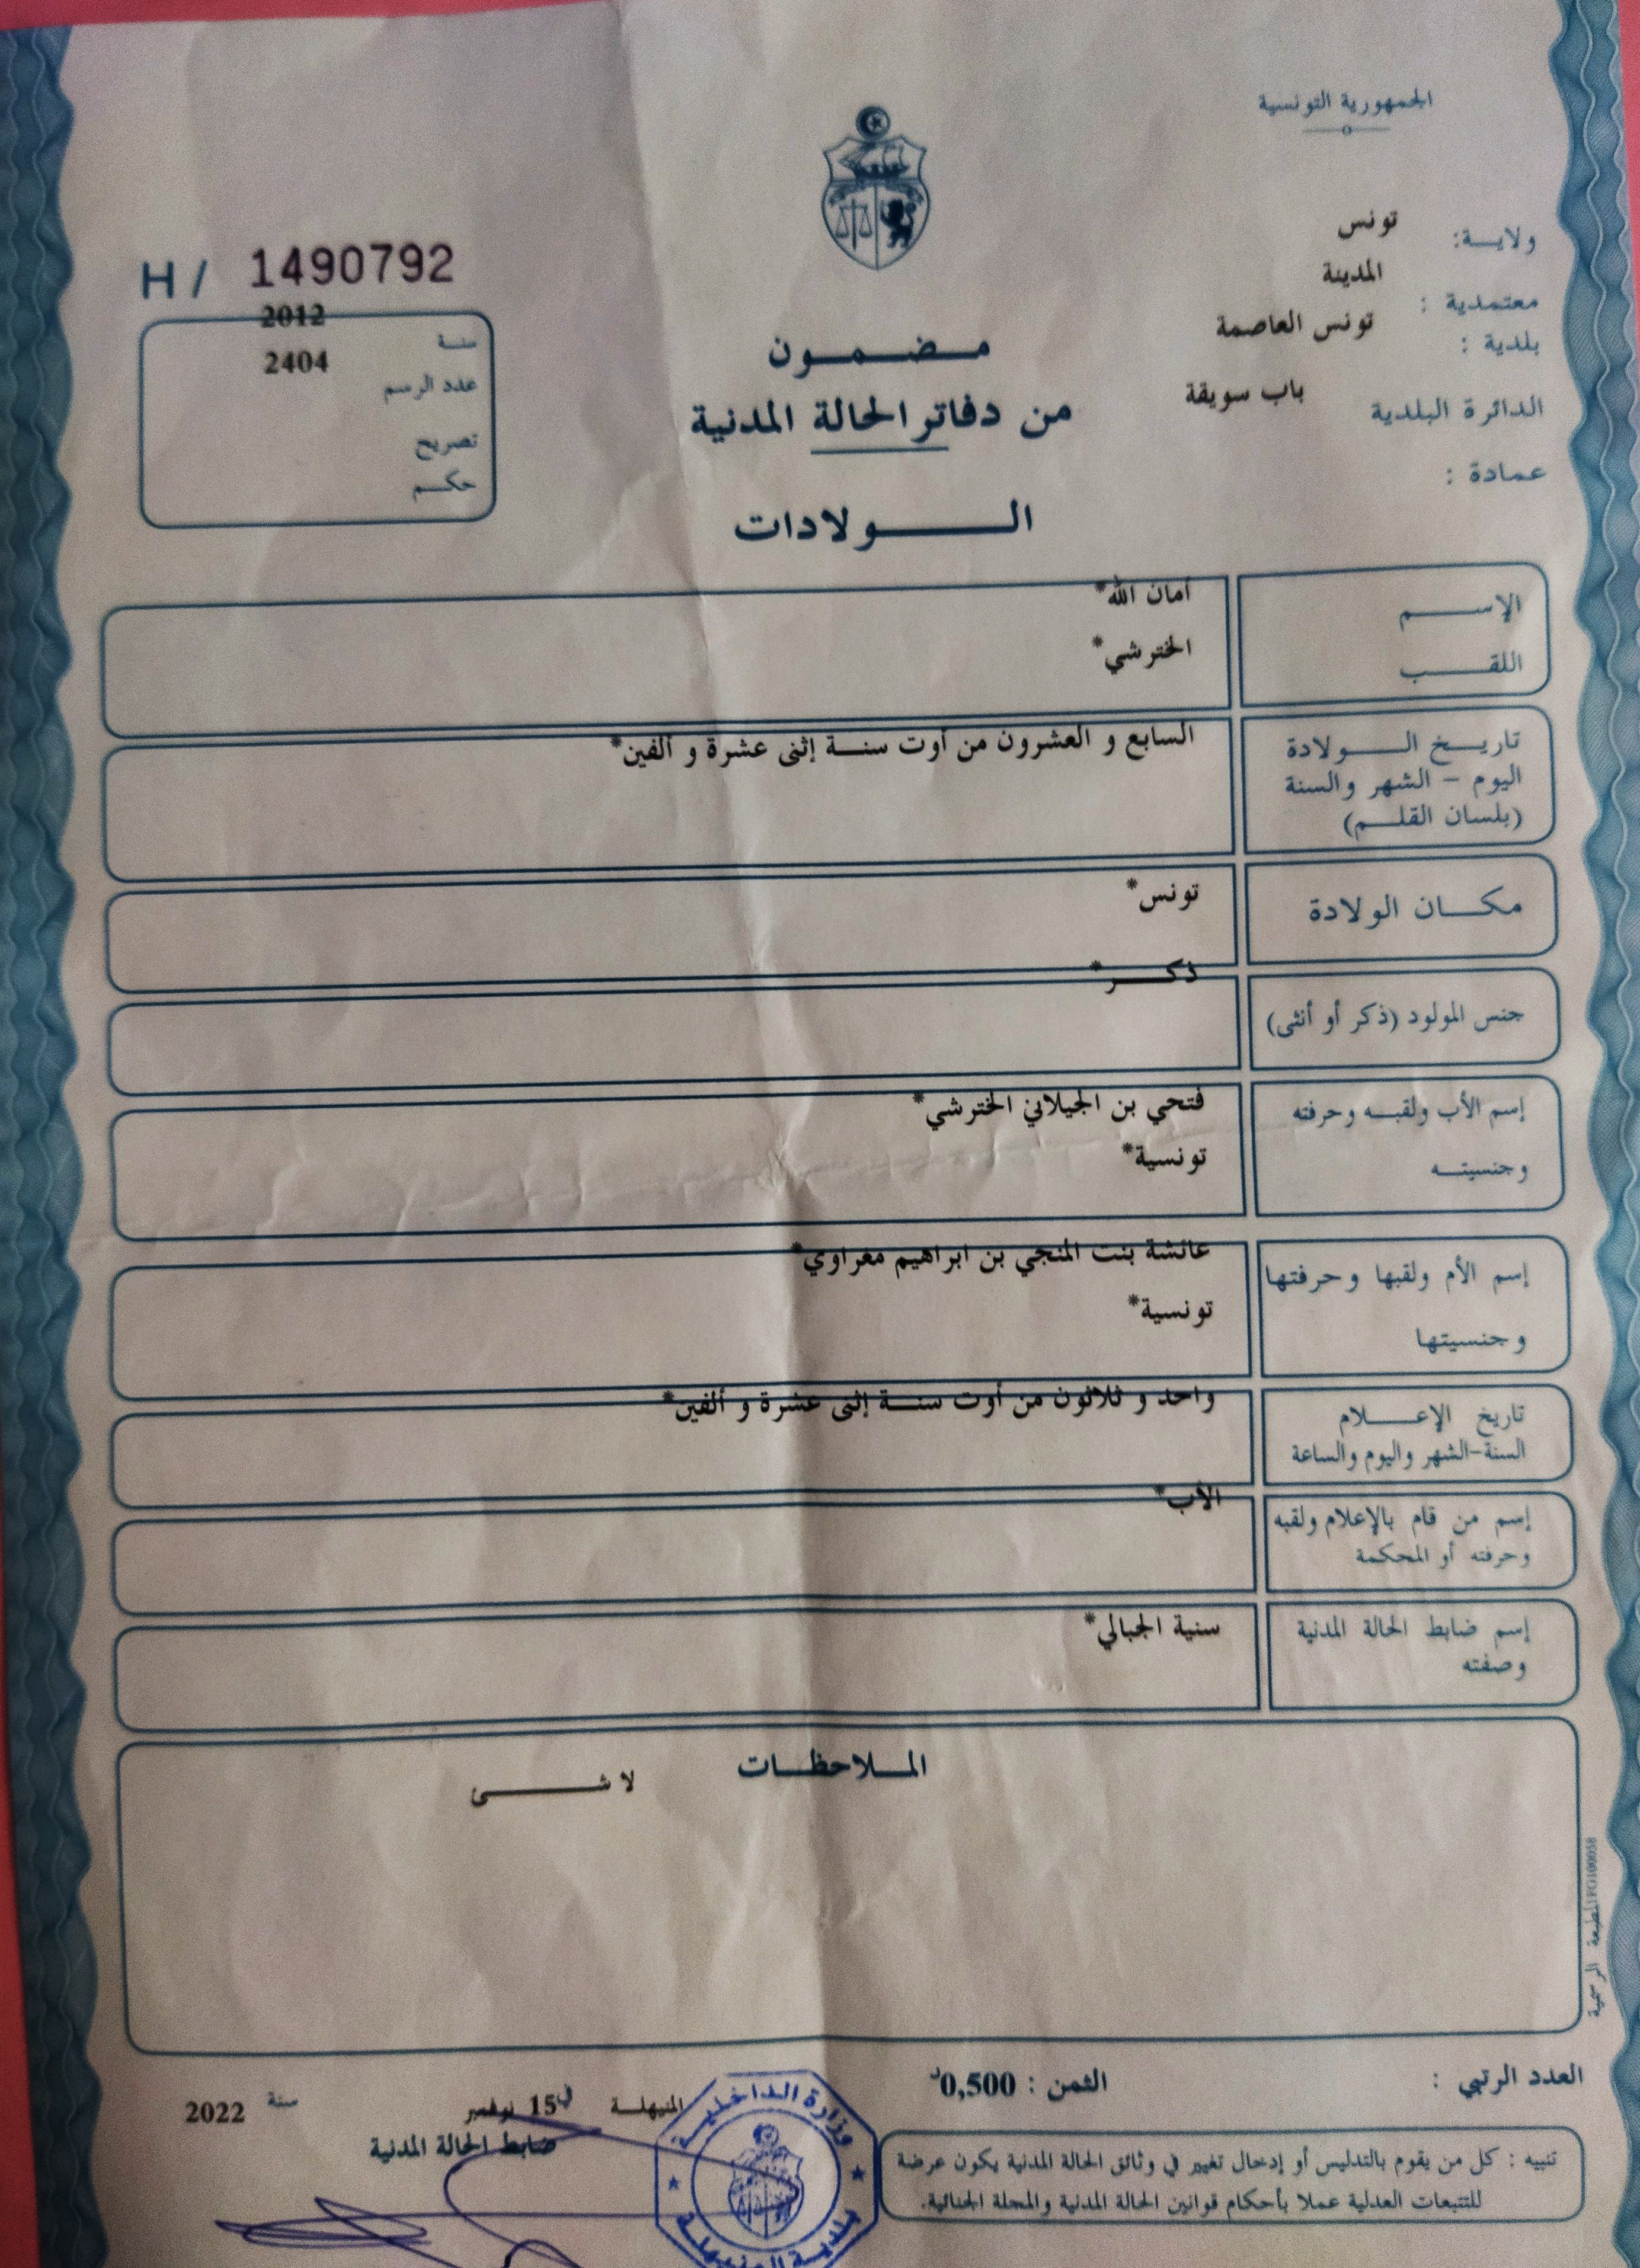 الجمهورية التونسية
ولاية: تونس
معتمدية : المدينة
بلدية : تونس العاصمة
الدائرة البلدية باب سويقة
عمادة :
H / 1490792
سنة 2012
عدد الرسم 2404
تصريح
حكم
مضمون
من دفاتر الحالة المدنية
الولادات
الإسم أمان الله*
اللقب الخترشي*
تاريخ الولادة السابع و العشرون من أوت سنة إثنى عشرة و ألفين*
اليوم - الشهر والسنة
(بلسان القلم)
مكان الولادة تونس*
جنس المولود (ذكر أو أنثى) ذكر*
إسم الأب ولقبه وحرفته فتحي بن الجيلاني الخترشي*
وجنسيته تونسية*
إسم الأم ولقبها وحرفتها عائشة بنت المنجي بن ابراهيم معراوي*
وجنسيتها تونسية*
تاريخ الإعلام واحد و ثلاثون من أوت سنة إثنى عشرة و ألفين*
السنة-الشهر واليوم والساعة
إسم من قام بالإعلام ولقبه الأب*
وحرفته أو المحكمة
إسم ضابط الحالة المدنية سنية الجبالي*
وصفته
الملاحظات
لا شئ
المطبعة الرسمية FG100058
العدد الرتبي :
الثمن : 0,500د
المنيهلة في 15 نوفمبر سنة 2022
ضابط الحالة المدنية
وزارة الداخلية
بلدية المنيهلة
تنبيه : كل من يقوم بالتدليس أو إدخال تغيير في وثائق الحالة المدنية يكون عرضة
للتتبعات العدلية عملا بأحكام قوانين الحالة المدنية والمجلة الجنائية.